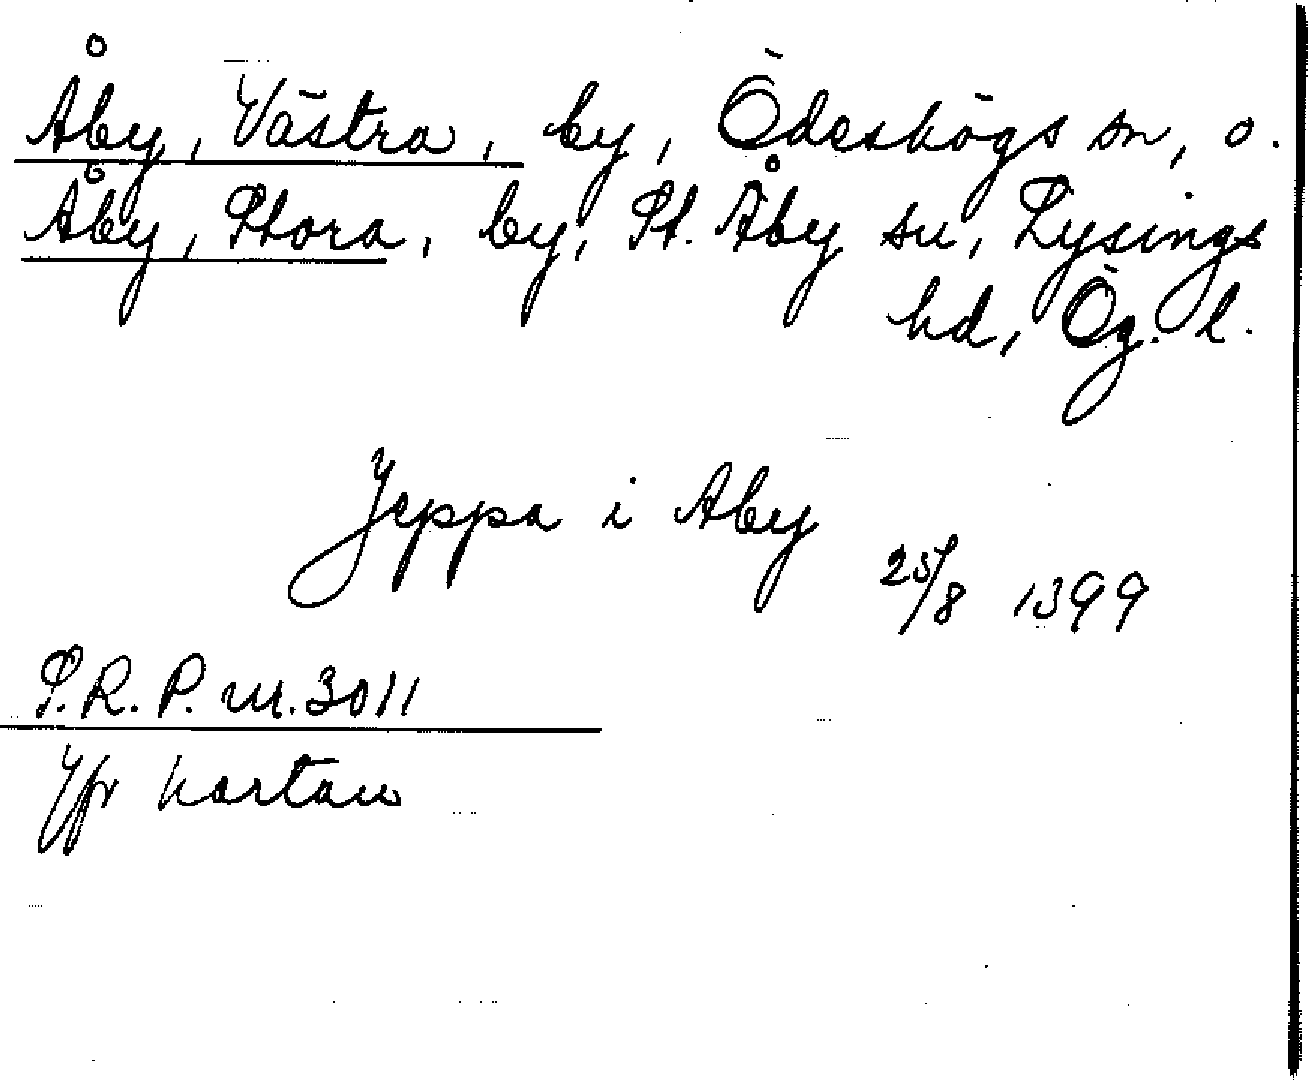 Åby, Västra, by, Ödeshögs sn, o.
Åby, Stora, by, St. Åby sn, Lysings
hd, Ög. l.
Jeppa i Aby
25/8 1399
S.R.P. nr. 3011
Jfr kartan